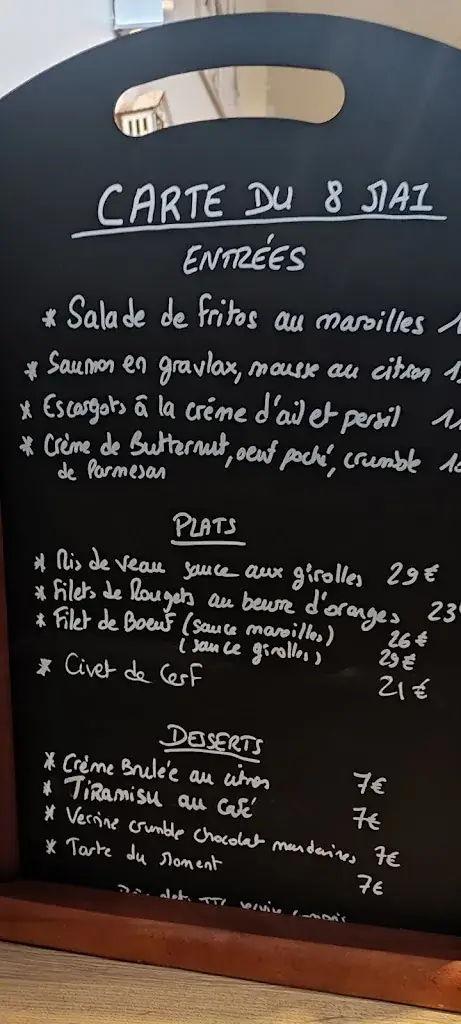 CARTE DU 8 MAI
ENTRÉES
* Salade de fritos au maroilles 1
* Saumon en gravlax, mousse au citron 1
* Escargots à la crème d'ail et persil 1
* Crème de Butternut, oeuf poché, crumble 1
de Parmesan
PLATS
* Ris de veau sauce aux girolles 29€
* Filets de Rougets au beurre d'oranges 23
* Filet de Boeuf (sauce maroilles) 26€
(sauce girolles) 29€
* Civet de Cerf 21€
DESSERTS
* Crème Brulée au citron 7€
* TIRAMISU au Café 7€
* Verrine crumble chocolat mandarines 7€
* Tarte du Moment 7€